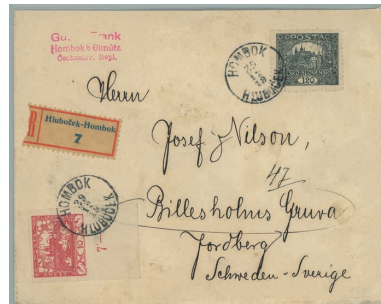 Frank
Hombok b Olmütz
Čechoslov. Repl.
POSTA
120
HOMBOK
HLUBOČEK
Herrn
R
Hluboček-Hombok
7
Josef J Nilson,
47
HOMBOK
HLUBOČEK
Billesholms Gruva
Jordberg
Schweden-Sverige